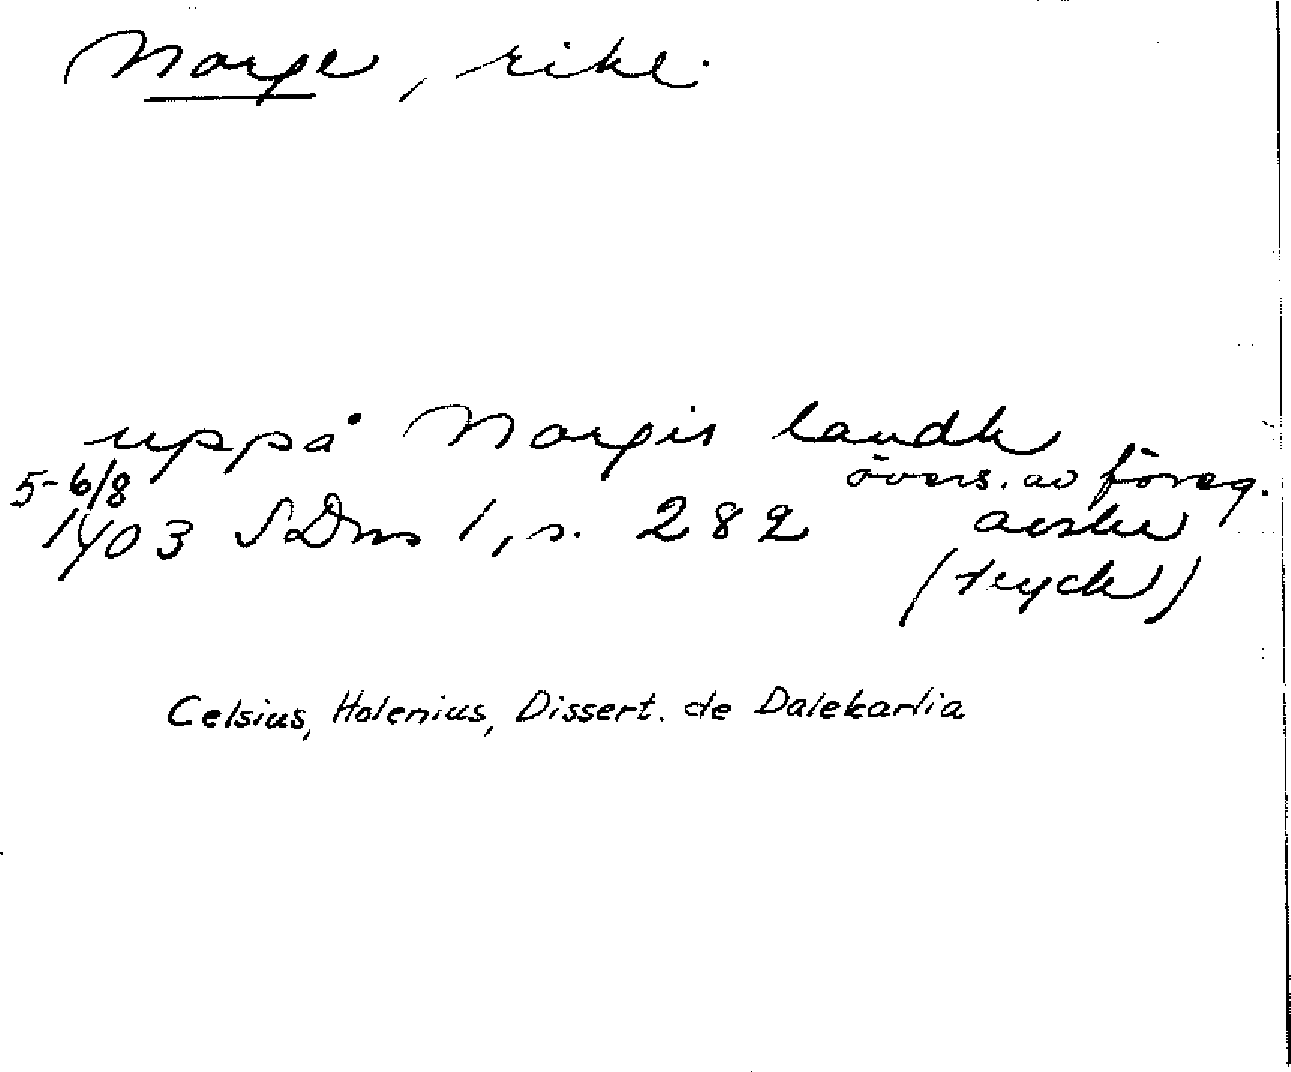 Norge, rike.
uppå Norgis landh
övers. av föreg.
5-6/8
1403 SDns 1, s. 282 avskr
(tryck)
Celsius, Holenius, Dissert. de Dalekarlia